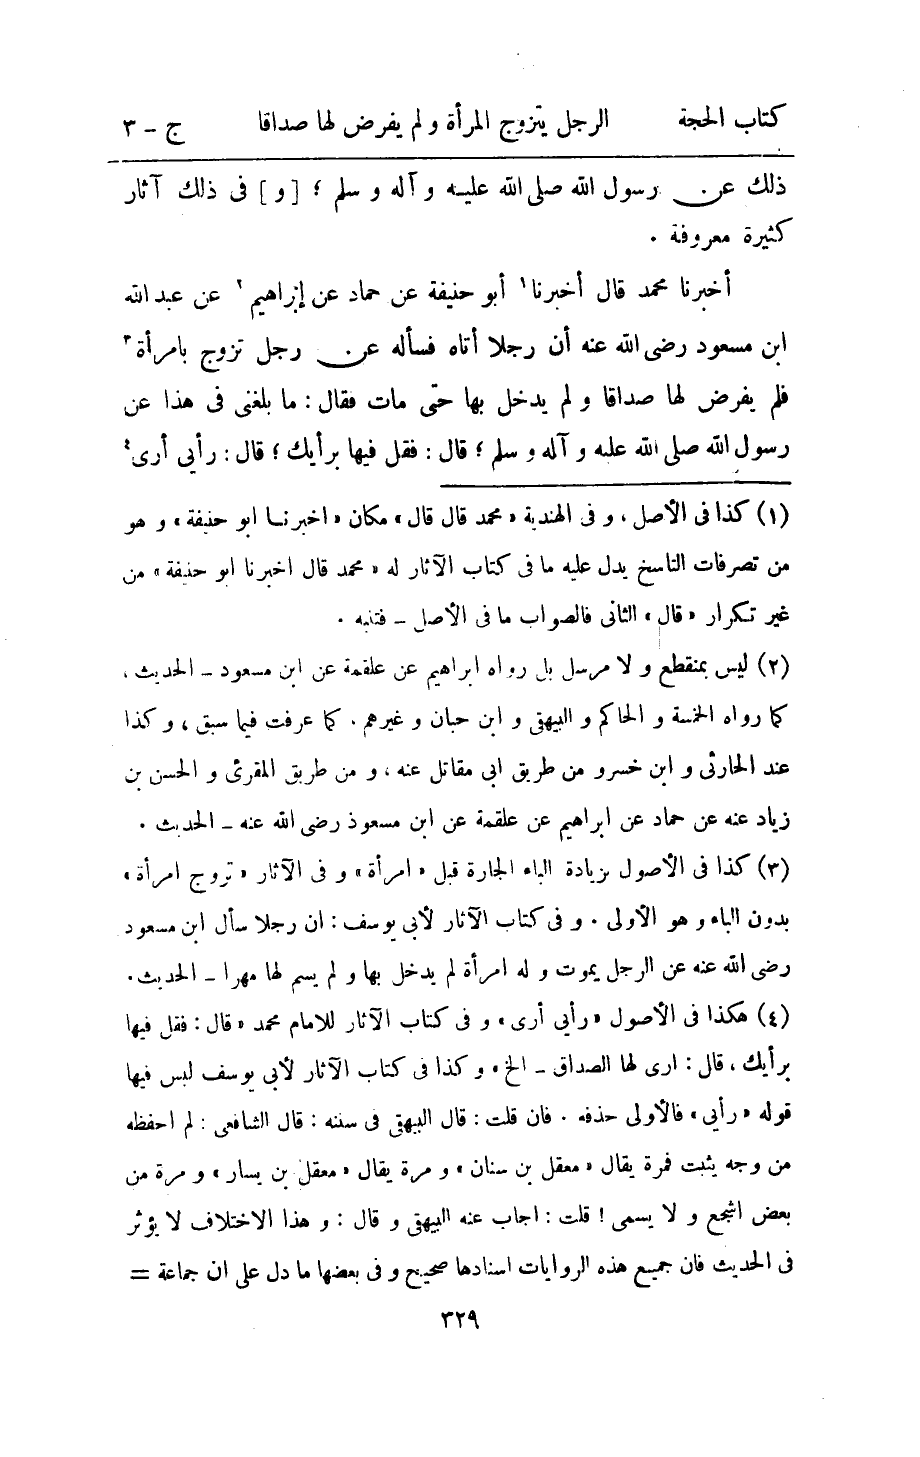 كتاب الحجة الرجل يتزوج المرأة و لم يفرض لها صداقا ج – ٣
ذلك عن رسول الله صلى الله عليه و آله و سلم ؛ [ و ] فى ذلك آثار
كثيرة معروفة .
أخبرنا محمد قال أخبرنا١ أبو حنيفة عن حماد عن إبراهيم٢ عن عبد الله
ابن مسعود رضى الله عنه أن رجلا أتاه فسأله عن رجل تزوج بامرأة٣
فلم يفرض لها صداقا و لم يدخل بها حتى مات فقال : ما بلغنى فى هذا عن
رسول الله صلى الله عليه و آله و سلم ؛ قال : فقل فيها برأيك ؛ قال : رأيى أرى٤
(١) كذا فى الأصل ، و فى الهندية « محمد قال قال » مكان « اخبرنا ابو حنيفة » و هو
من تصرفات الناسخ يدل عليه ما فى كتاب الآثار له « محمد قال اخبرنا ابو حنيفة » من
غير تكرار « قال » الثانى فالصواب ما فى الأصل – فتنبه .
(٢) ليس بمنقطع و لا مرسل بل رواه ابراهيم عن علقمة عن ابن مسعود – الحديث ،
كما رواه الخمسة و الحاكم و البيهقى و ابن حبان و غيرهم . كما عرفت فيما سبق ، و كذا
عند الحارثى و ابن خسرو من طريق ابى مقاتل عنه ، و من طريق المقرئ و الحسن بن
زياد عنه عن حماد عن ابراهيم عن علقمة عن ابن مسعوذ رضى الله عنه – الحديث .
(٣) كذا فى الأصول بزيادة الباء الجارة قبل « امرأة » و فى الآثار « تزوج امرأة »
بدون الباء و هو الأولى . و فى كتاب الآثار لأبى يوسف : ان رجلا سأل ابن مسعود
رضى الله عنه عن الرجل يموت و له امرأة لم يدخل بها و لم يسم لها مهرا – الحديث .
(٤) هكذا فى الأصول « رأيى أرى » و فى كتاب الآثار للامام محمد « قال : فقل فيها
برأيك ، قال : ارى لها الصداق – الخ » و كذا فى كتاب الآثار لأبى يوسف ليس فيها
قوله « رأيى » فالأولى حذفه . فان قلت : قال البيهقى فى سننه : قال الشافعى : لم احفظه
من وجه يثبت فمرة يقال « معقل بن سنان » و مرة يقال « معقل بن يسار » و مرة من
بعض اشجع و لا يسمى ! قلت : اجاب عنه البيهقى و قال : و هذا الاختلاف لا يؤثر
فى الحديث فان جميع هذه الروايات اسنادها صحيح و فى بعضها ما دل على ان جماعة =
٣٢٩